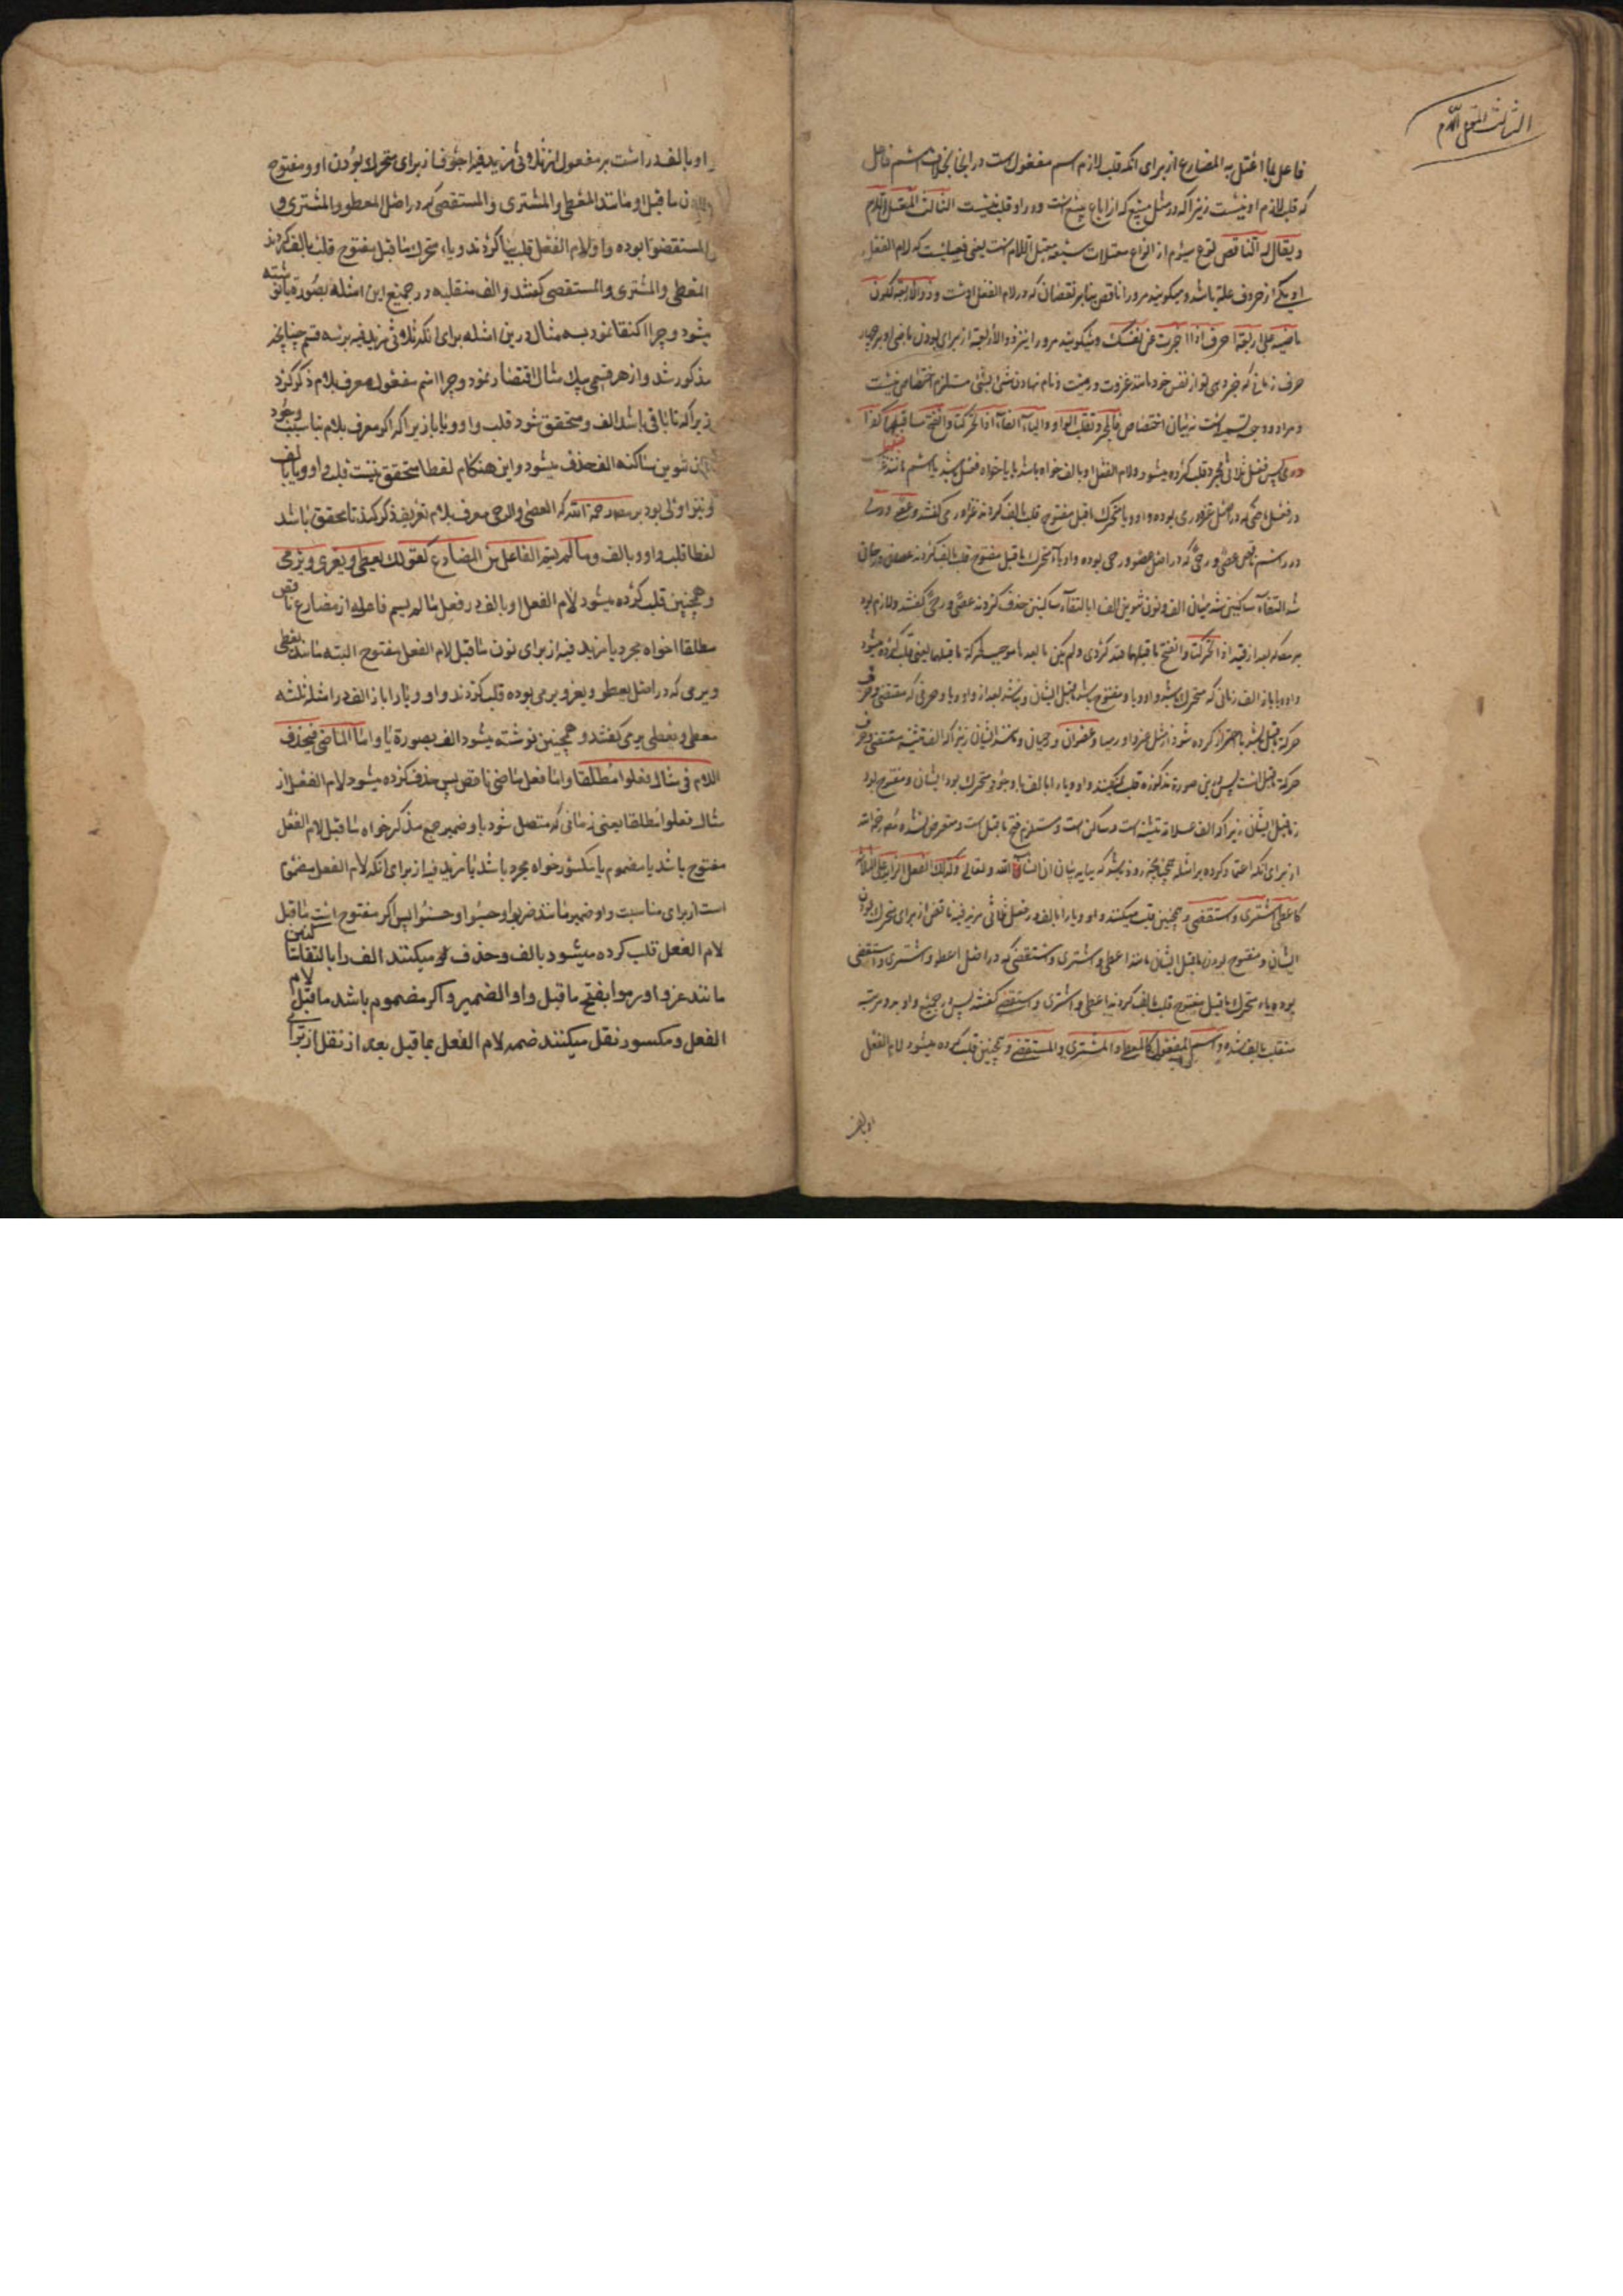 الثالث المعتل اللام
فاعل بما اعتل به المضارع از برای انکه قلب لازم اسم مفعول است در اینجا بخلاف اسم فاعل
که قلب لازم او نیست زیرا که در مثل مبیع که از اباع یبیع است و در او قلب نیست الثالث المعتل اللام
و یقال له الناقص نوع سیوم از انواع معتلات سبعه معتل اللام است یعنی فعلیست که لام الفعل
او یکی از حروف علة باشد و میکویند مرورا ناقص بنابر نقصان که در لام الفعل اوست و ذو الاربعة لکون
ماضیه علی اربعة احرف اذا اخبرت عن نفسک و میکویند مرورا نیز ذو الاربعة از برای بودن ماضی او بر چهار
حرف زمانی که خبر دهی تو از نفس خود مانند غزوت و رمیت و نام نهادن شیء بشیء مستلزم اختصاص نیست
و مراد وجه تسمیه است نه بیان اختصاص فالمجرد تقلب الواو والیاء الفا اذا تحرکتا وانفتح ما قبلهما کغزا
ورمی پس فعل ثلاثی مجرد قلب کرده میشود لام الفعل او بالف خواه باشد یا یا خواه فعل باشد یا اسم مانند غزا
در فعل ماضی که در اصل غزو و رمی بوده واو و یا متحرک ماقبل مفتوح قلب بالف کردند غزا و رمی کفتند و عصی و رحی
در اسم ناقص عصی و رحی که در اصل عصو و رحی بوده واو یا متحرک ماقبل مفتوح قلب بالف کردند عصان و رحان
شد التقاء ساکنین شد میان الف و نون تنوین الف را بالتقاء ساکنین حذف کردند عصی و رحی کفتند و لازم بود
بر مص که بعد از قید اذا تحرکتا وانفتح ما قبلهما قید کردی و لم یکن ما بعدهما موجب لحرکة ما قبلهما یعنی قلب کرده میشود
واو و یا با الف زمانی که متحرک باشد واو و یا و مفتوح باشد ماقبل ایشان و نباشد بعد از واو و یا حرفی که مقتضی حرف
حرکة ماقبل باشد تا احتراز کرده شود از مثل غزوا و رمیا و عصوان و رحیان و مانند ایشان زیرا که الف تثنیه مقتضی حرف
حرکة ماقبل است پس درین صورة مذکوره قلب نمیکنند واو و یا را بالف با وجود متحرک بودن ایشان و مفتوح بودن
ما قبل ایشان زیرا که الف علامة تثنیه است و ساکن است و مستلزم فتح ماقبل است و متعرض نشده مص رحمه الله
از برای انکه اعتماد کرده بر امثله چنانچه زود باشد که بیاید بیان ان انشاء الله تعالی وکذلک الفعل الزاید علی الثلاثة
کاعطی واشتری واستقصی و همچنین قلب میکنند واو و یا را بالف در فعل ثلاثی مزید فیه ناقص از برای متحرک بودن
ایشان و مفتوح بودن ماقبل ایشان مانند اعطی و اشتری و استقصی که در اصل اعطو و اشتری و استقصی
بوده یاء متحرک ماقبل مفتوح قلب بالف کردند اعطی و اشتری و استقصی کفتند پس در جمیع واو بدو مرتبه
منقلب بالف شده واسم المفعول کالمعطی والمشتری والمستقصی و همچنین قلب کرده میشود لام الفعل
او بالف
او بالف در است بر مفعول از ثلاثی مزید فیه اجوف از برای متحرک بودن او و مفتوح
بودن ماقبل او مانند المعطی والمشتری والمستقصی که در اصل المعطو والمشتری و
المستقصو بوده واو لام الفعل قلب بیا کردند و یاء متحرک ماقبل مفتوح قلب بالف کردند
المعطی والمشتری والمستقصی کفتند و الف منقلبه در جمیع این امثله بصورة یا نوشته
میشود و چرا اکتفا نمود بسه مثال درین امثله برای انکه ثلاثی مزید فیه بر سه قسم چنانچه
مذکور شد و از هر قسمی بیک مثال اقتصار نمود و چرا اسم مفعول معرف بلام ذکر کرد
زیرا که تا باقی باشد الف و متحقق شود قلب واو و یا با زیرا که اکر معرف بلام نباشد بسبب وجود
ان تنوین ساکنه الف حذف میشود و این هنکام لفظا متحقق نیست قلب واو و یا بالف
و نیز اولی بود بر مص رحمه الله که العصی والرحی معرف بلام تعریف ذکر کند تا محقق باشد
لفظا قلب واو و یا بالف وما لم یسم الفاعل من المضارع کقولک یعطی ویغزی ویرمی
و همچنین قلب کرده میشود لام الفعل او بالف در فعل ما لم یسم فاعله از مضارع ناقص
مطلقا خواه مجرد یا مزید فیه از برای بودن ماقبل لام الفعل مفتوح البته مانند یعطی
و یرمی که در اصل یعطو و یغزو و یرمی بوده قلب کردند واو و یا را با الف در امثله ثلثه
یعطی و یغزی یرمی کفتند و همچنین نوشته میشود الف بصورة یا واما الماضی فیحذف
اللام فی مثال فعلوا مطلقا واما فعل ماضی ناقص پس حذف کرده میشود لام الفعل از
مثال فعلوا مطلقا یعنی زمانی که متصل شود باو ضمیر جمع مذکر خواه ماقبل لام الفعل
مفتوح باشد یا مضموم یا مکسور خواه مجرد باشد یا مزید فیه از برای انکه لام الفعل مضموم
است از برای مناسبت واو ضمیر مانند ضربوا و حسبوا و حسنوا پس اکر مفتوح است ماقبل
لام الفعل قلب کرده میشود بالف و حذف میکنند الف را بالتقاء ساکنین
مانند غزوا و رموا بفتح ماقبل واو الضمیر و اکر مضموم باشد ماقبل لام
الفعل و مکسور نقل میکنند ضمه لام الفعل بما قبل بعد از نقل از برای